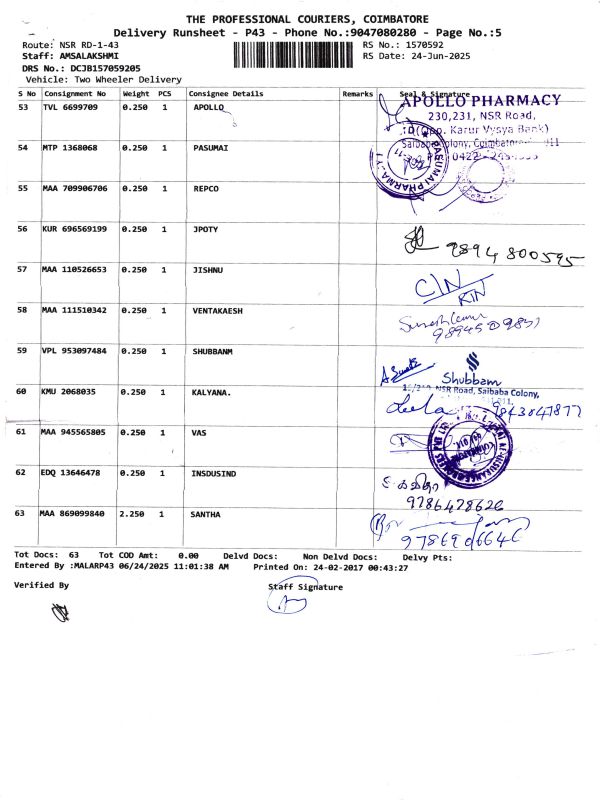 THE PROFESSIONAL COURIERS, COIMBATORE
Delivery Runsheet - P43 - Phone No.:9047080280 - Page No.:5
Route: NSR RD-1-43 RS No.: 1570592
Staff: AMSALAKSHMI RS Date: 24-Jun-2025
DRS No.: DCJB157059205
Vehicle: Two Wheeler Delivery
S No Consignment No Weight PCS Consignee Details Remarks Seal & Signature
53 TVL 6699709 0.250 1 APOLLO
APOLLO PHARMACY
230,231, NSR Road,
(Opp. Karur Vysya Bank)
54 MTP 1368068 0.250 1 PASUMAI
PASUMAI PHARMACY
55 MAA 709906706 0.250 1 REPCO
56 KUR 696569199 0.250 1 JPOTY
9894800595
57 MAA 110526653 0.250 1 JISHNU
58 MAA 111510342 0.250 1 VENTAKAESH
59 VPL 953097484 0.250 1 SHUBBANM
Shubbam
NSR Road, Saibaba Colony,
60 KMU 2068035 0.250 1 KALYANA.
Leela 9843047877
61 MAA 945565805 0.250 1 VAS
62 EDQ 13646478 0.250 1 INSDUSIND
9786478626
63 MAA 869099840 2.250 1 SANTHA
Tot Docs: 63 Tot COD Amt: 0.00 Delvd Docs: Non Delvd Docs: Delvy Pts:
Entered By :MALARP43 06/24/2025 11:01:38 AM Printed On: 24-02-2017 00:43:27
Verified By Staff Signature